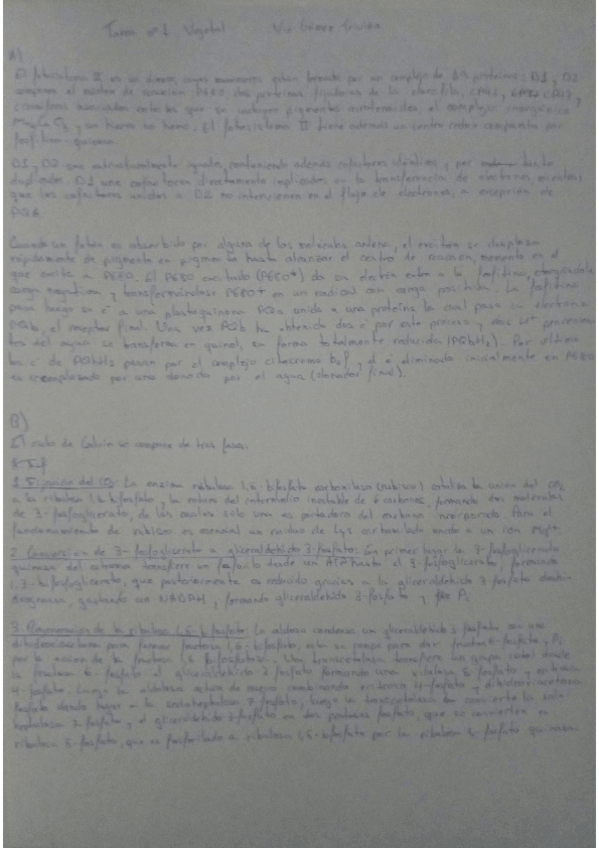 Tarea nº1 Vegetal
A)
El fotosistema II es un dímero cuyos monómeros están formado por un complejo de 19 proteínas: D1, D2
el centro de reacción P680, dos proteínas fijadoras de la clorofila, CP43, CP47,
cofactores asociados entre los que se incluyen pigmentos carotenoides, el complejo inorgánico
y un hierro no hemo. El fotosistema II tiene además un centro redox compuesto por
feofitina-quinona.
D1 y D2 son estructuralmente iguales, conteniendo además cofactores idénticos y por tanto
duplicados. D1 une cofactores directamente implicados en la transferencia de electrones mientras
que los cofactores unidos a D2 no intervienen en el flujo de electrones, a excepción de
PQA.
Cuando un fotón es absorbido por alguna de las moléculas antena, el excitón se desplaza
rápidamente de pigmento en pigmento hasta alcanzar el centro de reacción, momento en el
que excita a P680. El P680 excitado (P680*) da un electrón extra a la feofitina,
carga negativa, y transformándose P680+ en un radical con carga positiva. La feofitina
pasa luego su e- a una plastoquinona PQA unida a una proteína la cual pasa su electrón a
PQB, el receptor final. Una vez PQB ha obtenido dos e- por este proceso y dos H+
del agua se transforma en quinol, su forma totalmente reducida (PQBH2). Por último
los e- de PQBH2 pasan por el complejo citocromo b6f, y el e- eliminado inicialmente en P680
es reemplazado por uno donado por el agua (donador final).
B)
El ciclo de Calvin se compone de tres fases.
1. Fijación del CO2: La enzima ribulosa 1,5-bifosfato carboxilasa (rubisco) cataliza la unión del CO2
a la ribulosa 1,5 bifosfato, y la rotura del intermedio inestable de 6 carbonos, formando dos moléculas
de 3-fosfoglicerato, de las cuales solo una es portadora del carbono incorporado. Para el
funcionamiento de rubisco es esencial un residuo de Lys carbamilado unido a un ión Mg2+.
2. Conversión de 3-fosfoglicerato a gliceraldehído 3-fosfato: En primer lugar la 3-fosfoglicerato
quinasa del estroma transfiere un fosforilo desde un ATP hasta el 3-fosfoglicerato, formando
1,3-bifosfoglicerato, que posteriormente es reducido gracias a la gliceraldehído 3 fosfato
gastando un NADPH, formando gliceraldehído 3-fosfato y Pi
3. Regeneración de la ribulosa 1,5 bifosfato: La aldolasa condensa un gliceraldehído 3 fosfato con una
dihidroxiacetona para formar fructosa 1,6-bifosfato, esta se rompe para dar fructosa 6-fosfato y Pi
por la acción de la fructosa 1,6 bifosfatasa. Una transcetolasa transfiere un grupo cetol desde
la fructosa 6-fosfato al gliceraldehído 3 fosfato formando una xilulosa 5-fosfato y eritrosa
4-fosfato. Luego la aldolasa actúa de nuevo combinando eritrosa 4-fosfato y dihidroxiacetona
fosfato dando lugar a la sedoheptulosa 7-fosfato, luego la transcetolasa convierte la
heptulosa 7-fosfato y el gliceraldehído 3-fosfato en dos pentosas fosfato, que se convierten en
ribulosa 5-fosfato, que es fosforilado a ribulosa 1,5-bifosfato por la ribulosa 5-fosfato quinasa.